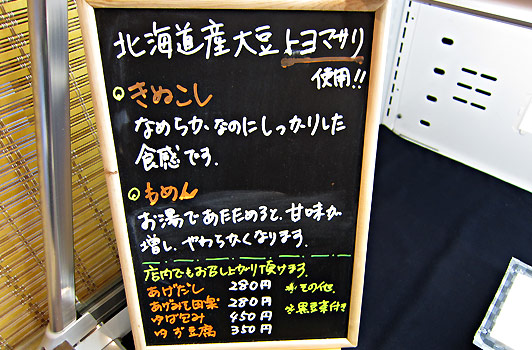 北海道産大豆トヨマサリ
使用!!
きぬこし
なめらかなのにしっかりした
食感です.
もめん
お湯であたためると、甘味が
増し、やわらかくなります.
店内でもお召し上がり頂けます.
あげだし 280円 その他,
あげみそ田楽 280円
ゆば包み 450円
ゆず豆腐 350円